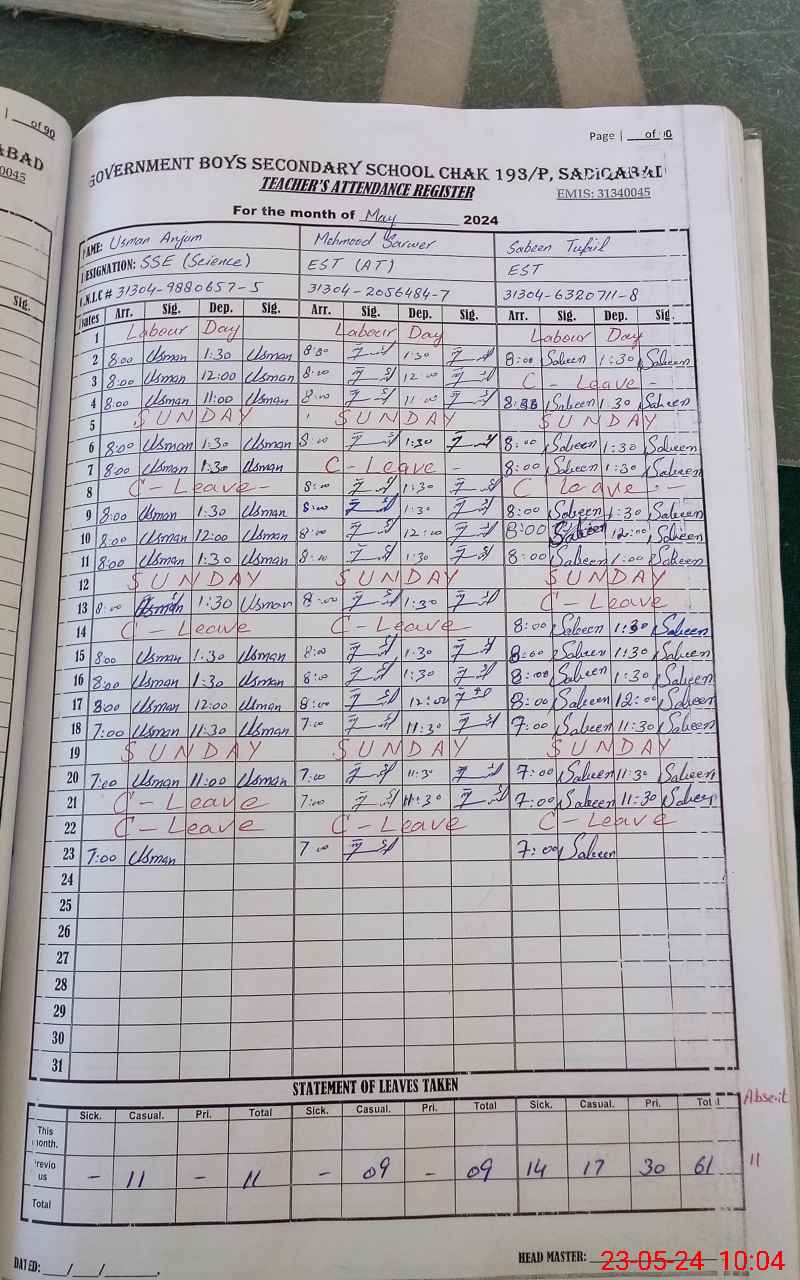 of 90
ABAD
0045
Sig.
Page | of 90
GOVERNMENT BOYS SECONDARY SCHOOL CHAK 193/P, SADIQABAD
TEACHER'S ATTENDANCE REGISTER EMIS: 31340045
For the month of May 2024
NAME: Usman Anjam Mehmood Sarwer Sabeen Tufail
DESIGNATION: SSE (Science) EST (AT) EST
C.N.I.C # 31304-9880657-5 31304-2056484-7 31304-6320711-8
Dates Arr. Sig. Dep. Sig. Arr. Sig. Dep. Sig. Arr. Sig. Dep. Sig.
1 Labour Day Labour Day Labour Day
2 8:00 Usman 1:30 Usman 8:00 1:30 8:00 Sabeen 1:30 Sabeen
3 8:00 Usman 12:00 Usman 8:00 12:00 C - Leave -
4 8:00 Usman 11:00 Usman 8:00 11:00 Sabeen 1:30 Sabeen
5 SUNDAY SUNDAY SUNDAY
6 8:00 Usman 1:30 Usman 8:00 1:30 8:00 Sabeen 1:30 Sabeen
7 8:00 Usman 1:30 Usman C - Leave - 8:00 Sabeen 1:30 Sabeen
8 C - Leave - 8:00 1:30 C Leave -
9 8:00 Usman 1:30 Usman 8:00 1:30 8:00 Sabeen 1:30 Sabeen
10 8:00 Usman 12:00 Usman 8:00 12:00 8:00 Sabeen 12:00 Sabeen
11 8:00 Usman 1:30 Usman 8:00 1:30 8:00 Sabeen 1:00 Sabeen
12 SUNDAY SUNDAY SUNDAY
13 8:00 Usman 1:30 Usman 8:00 1:30 C - Leave
14 C - Leave C - Leave 8:00 Sabeen 1:30 Sabeen
15 8:00 Usman 1:30 Usman 8:00 1:30 8:00 Sabeen 1:30 Sabeen
16 8:00 Usman 1:30 Usman 8:00 1:30 8:00 Sabeen 1:30 Sabeen
17 8:00 Usman 12:00 Usman 8:00 12:00 8:00 Sabeen 12:00 Sabeen
18 7:00 Usman 11:30 Usman 7:00 11:30 7:00 Sabeen 11:30 Sabeen
19 SUNDAY SUNDAY SUNDAY
20 7:00 Usman 11:00 Usman 7:00 11:30 7:00 Sabeen 11:30 Sabeen
21 C - Leave 7:00 11:30 7:00 Sabeen 11:30 Sabeen
22 C - Leave C - Leave C - Leave
23 7:00 Usman 7:00 7:00 Sabeen
24
25
26
27
28
29
30
31
STATEMENT OF LEAVES TAKEN
Sick. Casual. Pri. Total Sick. Casual. Pri. Total Sick. Casual. Pri. Total Absent
This month.
Previous - 11 - 11 - 09 - 09 14 17 30 61 11
Total
DATED: __/__/__. HEAD MASTER:
23-05-24 10:04